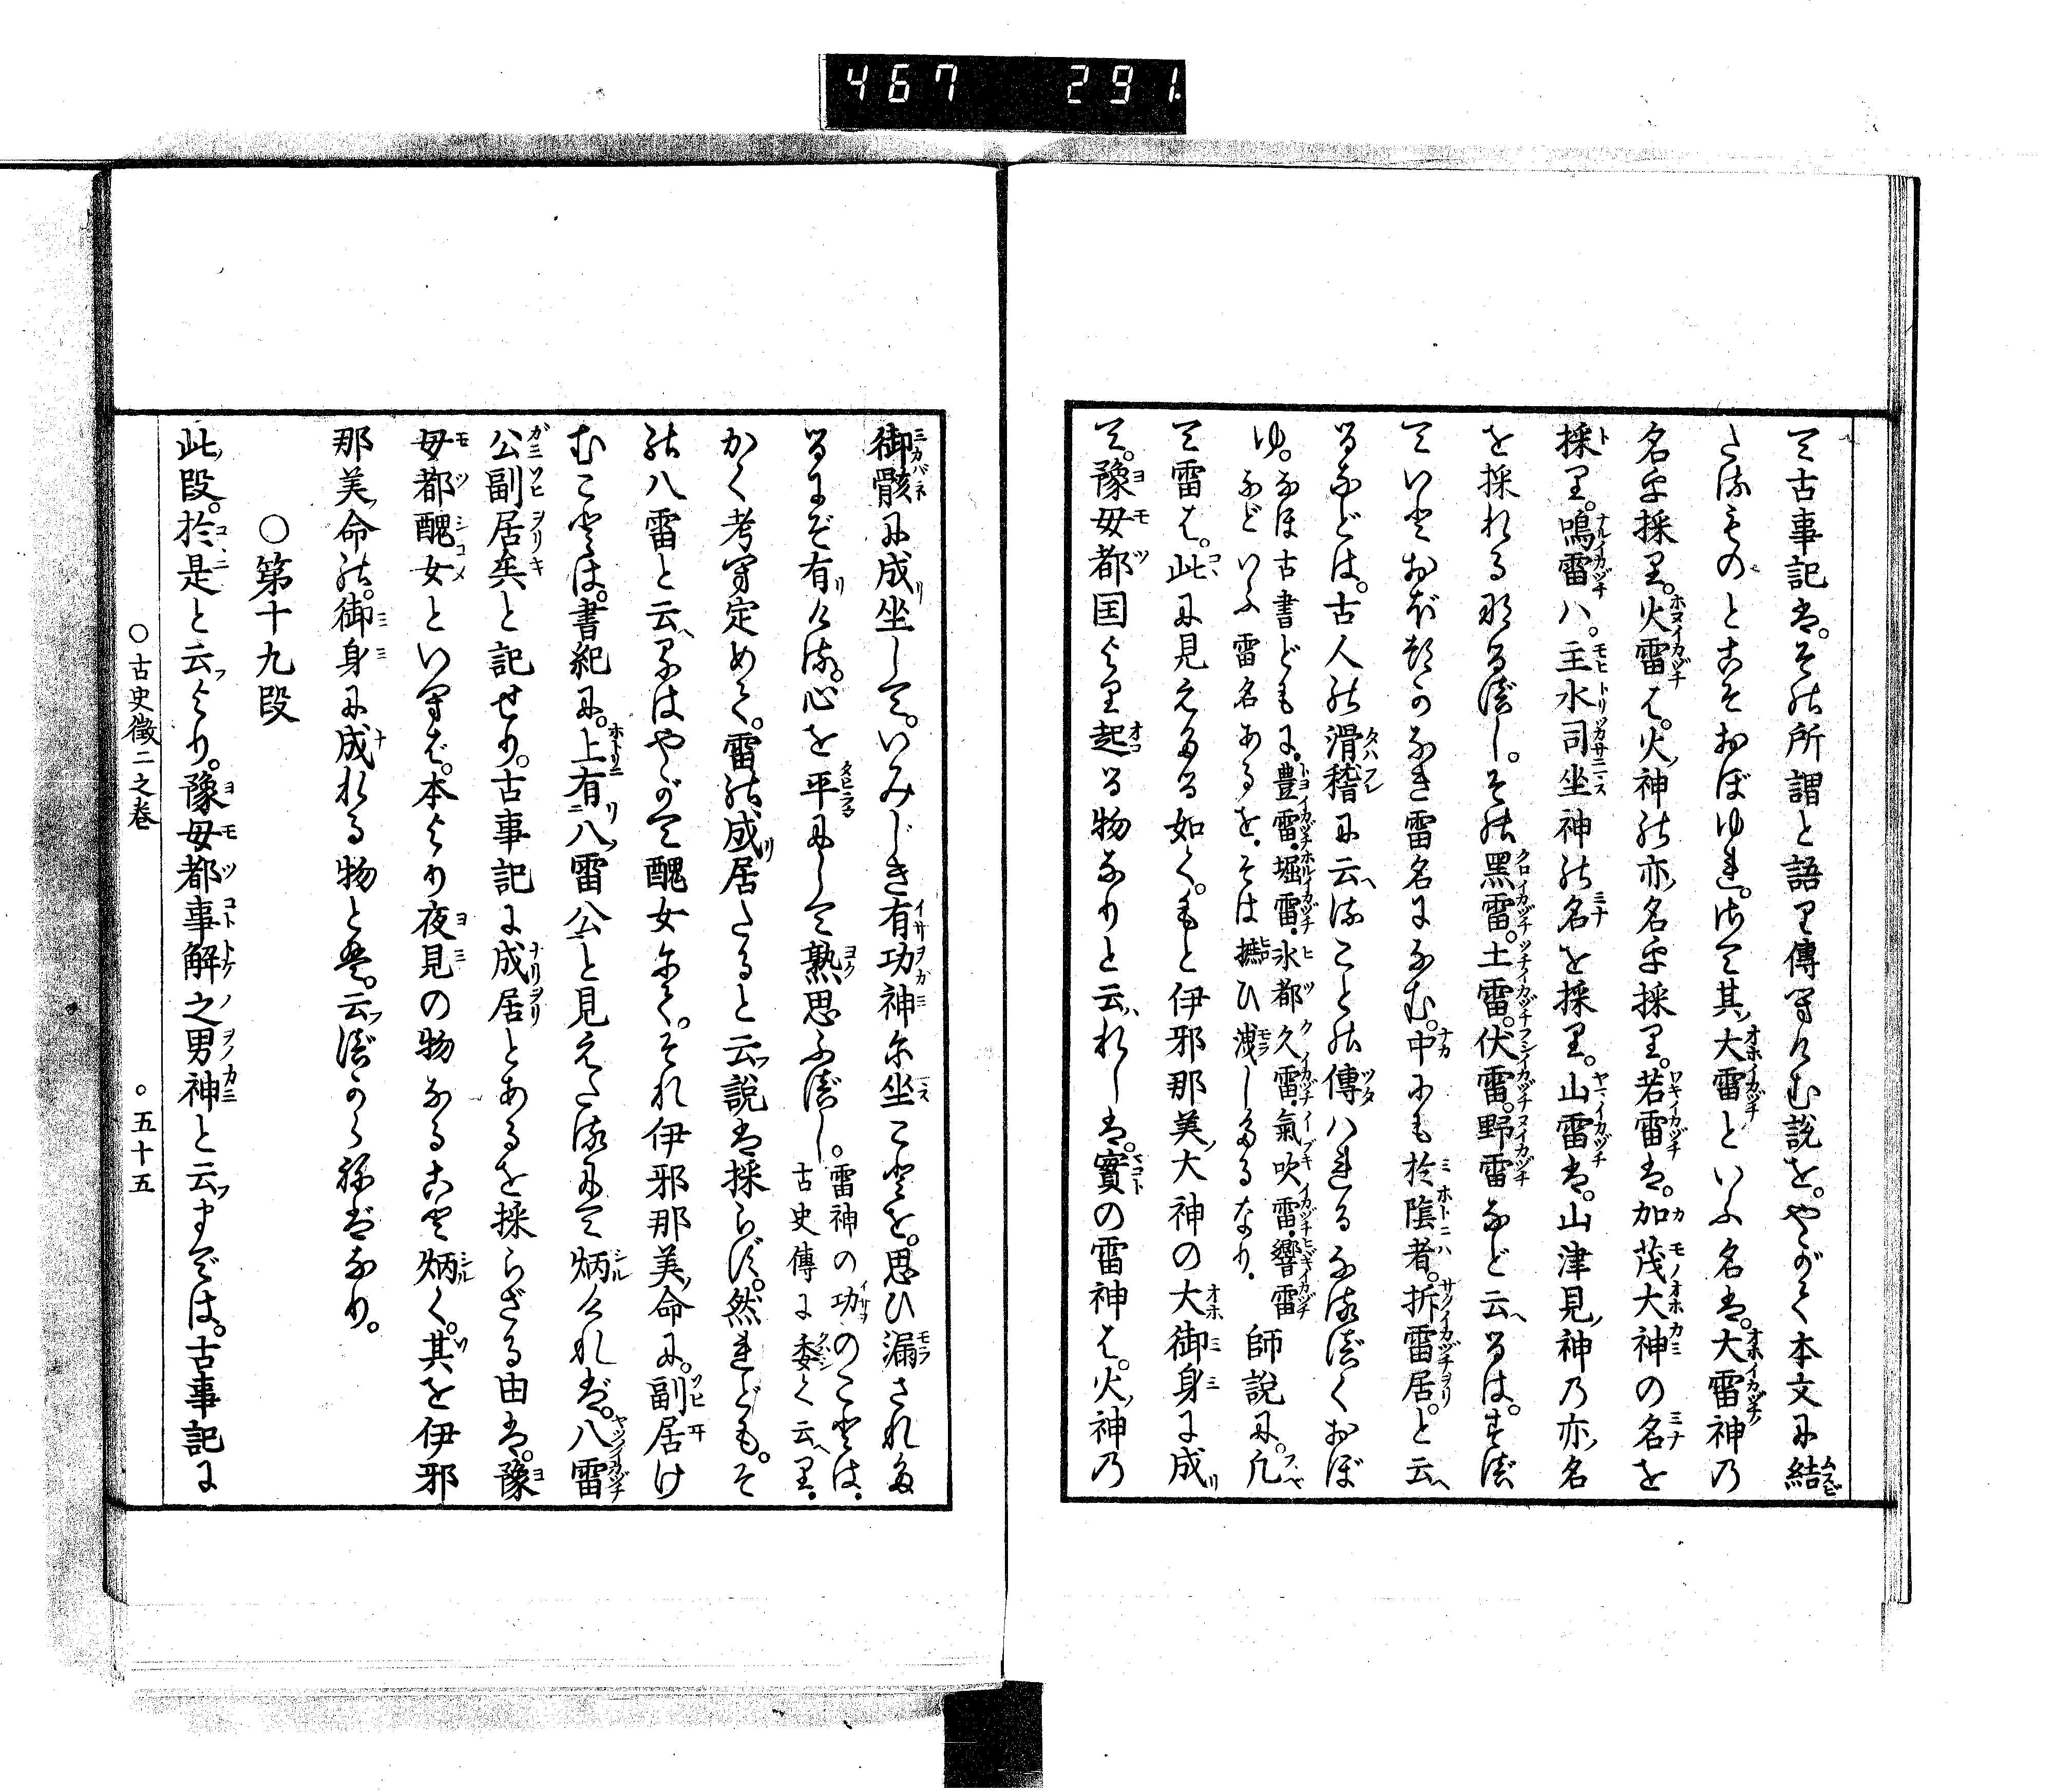 467 291
て古事記は。その所謂と語り傳するむ說を。やがて本文に結
たるものとこそおぼゆれ。さて其大雷といふ名は。大雷神の
名を採り。火雷は。火神の亦名を採り。若雷は。加茂大神の名を
採り。鳴雷ハ。主水司坐神の名を採り。山雷は。山津見神乃亦名
を採れる那るべし。その黑雷。土雷。伏雷。野雷など云へるは。すべ
ていとおぼつかなき雷名になむ。中にも於陰者。拆雷居。と云へ
るなどは。古人の滑稽に云へることの傳ハれるなるべくおぼ
ゆ。なほ古書どもに。豊雷。堀雷。氷都久雷。氣吹雷。響雷
などいふ雷名あるを。そは攟ひ洩しるなり。師說に。凡
て雷は。此に見えたる如く。もと伊邪那美大神の大御身に成
て。豫毋都国より起る物なりと云れしは。實の雷神は。火神乃
御骸に成坐して。いみじき有功神に坐ことを。思ひ漏された
るにぞ有ける。心を平にして熟思ふべし。雷神の功のことは。
古史傳に委く云へり。
かく考へ定めて。雷の成居たると云説は採らず。然れども。そ
の八雷と云へるはやがて醜女にて。それ伊邪那美命に。副居け
むことは。書紀に。上有八雷公と見えたるにて炳ければ。八雷
公副居矣と記せり。古事記に成居とあるを採らざる由は。豫
毋都醜女といへば。本より夜見の物なること炳く。其を伊邪
那美命の。御身に成れる物とは。云べからねばなり。
○第十九段
此段。於是と云より。豫毋都事解之男神と云までは。古事記に
○古史徵二之卷 ○五十五